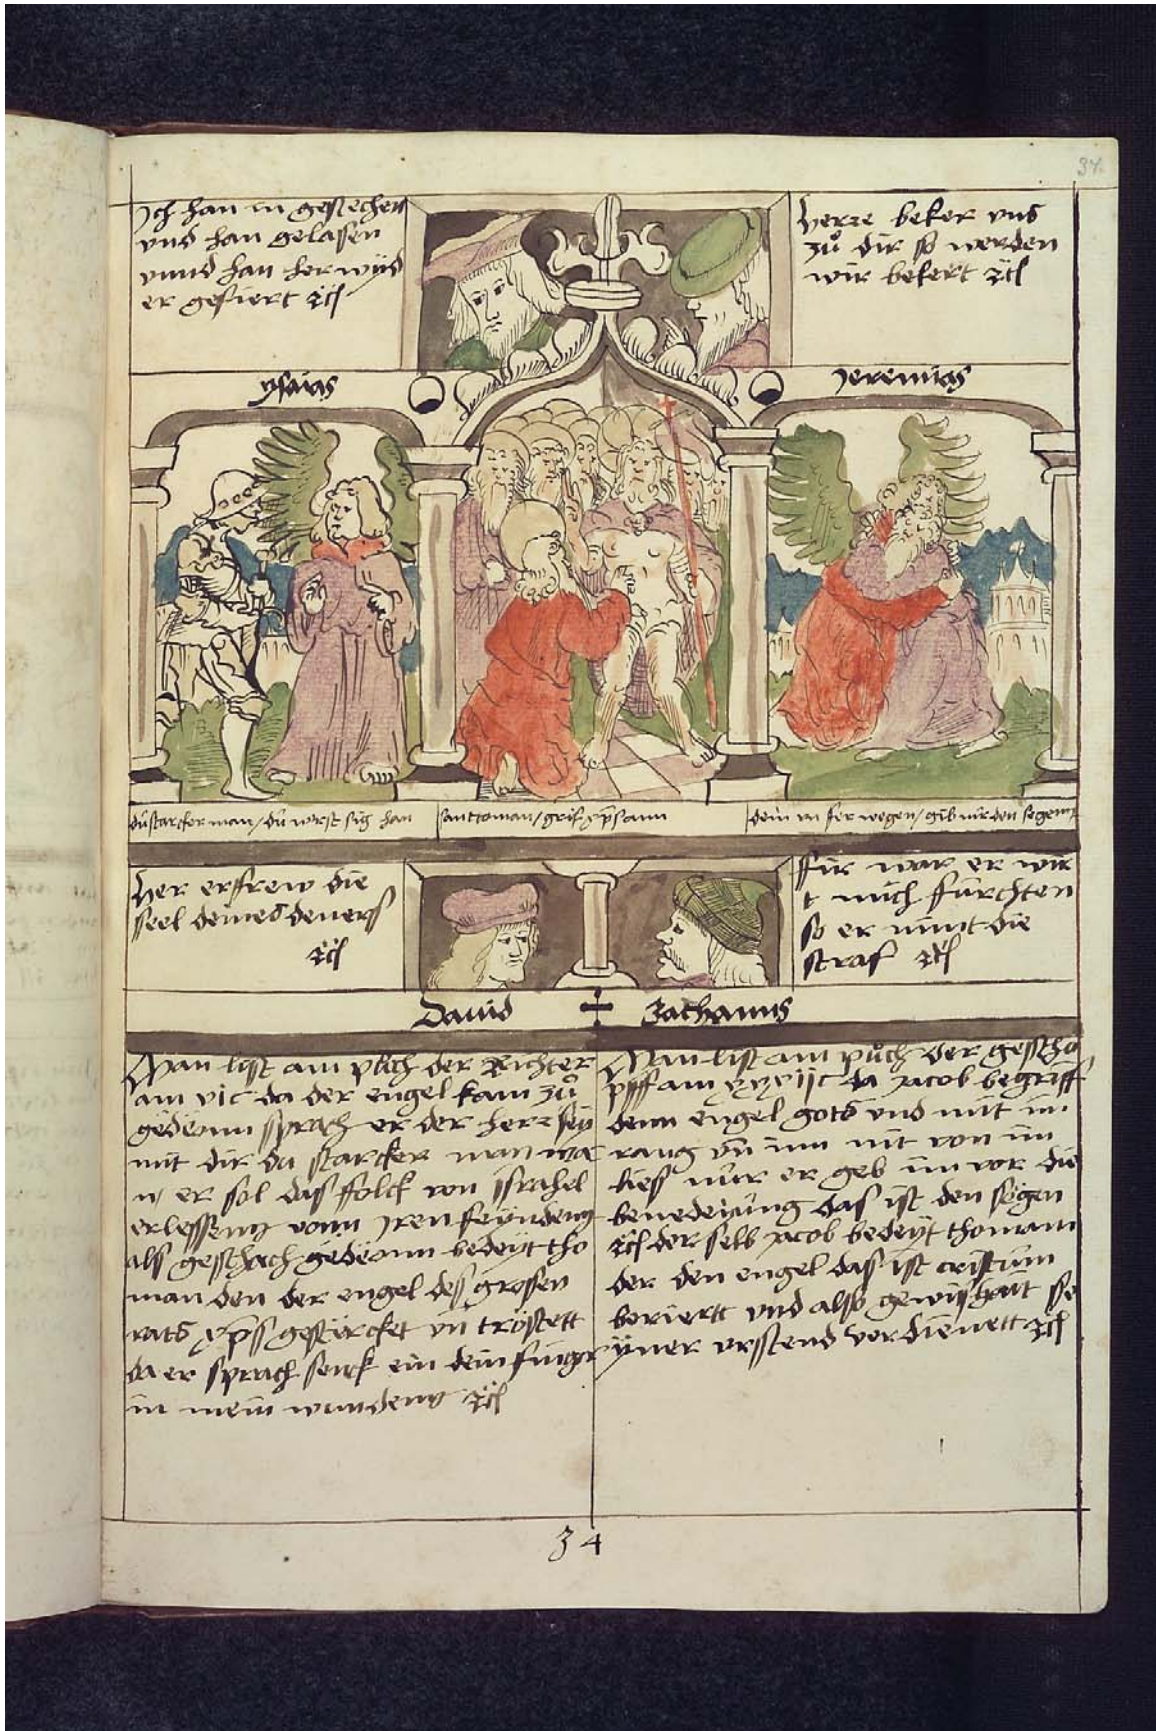 37.
Jch han in gesechen
vnd han gelasen
vnnd han her wyd
er gefiert ꝛc
herre beker vns
zů dir so werden
wir bekert ꝛc
ysaias
Jeremias
du starcker man / du wirst sig han
sant toman / grif xp̄s ann
dein vn ser wegen / gib mir den segenn
her erfrew die
seel deines deners
ꝛc
fur war er wir
t mich fürchten
so er nimt die
straf ꝛc
Dauid
Zachanus
Man list am půch der Richter
am vic da der engel kam zů
gedeonn sprach er der herr sey
mit dir du starcker man wa
n er sol das folck von jsrahel
erlessenn vonn jren feynden
als geschach gedeonn bedeyt tho
man den der engel des grossen
rats xp̄s gestercket vn̄ tröstett
da er sprach senck ein dein finger
in mein wunden ꝛc
Man list am půch der gescho
pff am xxxijc da jacob begriff
denn engel gots vnd mit im
rang vn̄ inn nit von im
lies nur er geb im vor die
benedeyung das ist den segen
ꝛc der selb jacob bedeyt thomam
der den engel das ist cristum
beriertt vnd also gewishait se
yner vrstend verdienett ꝛc
34